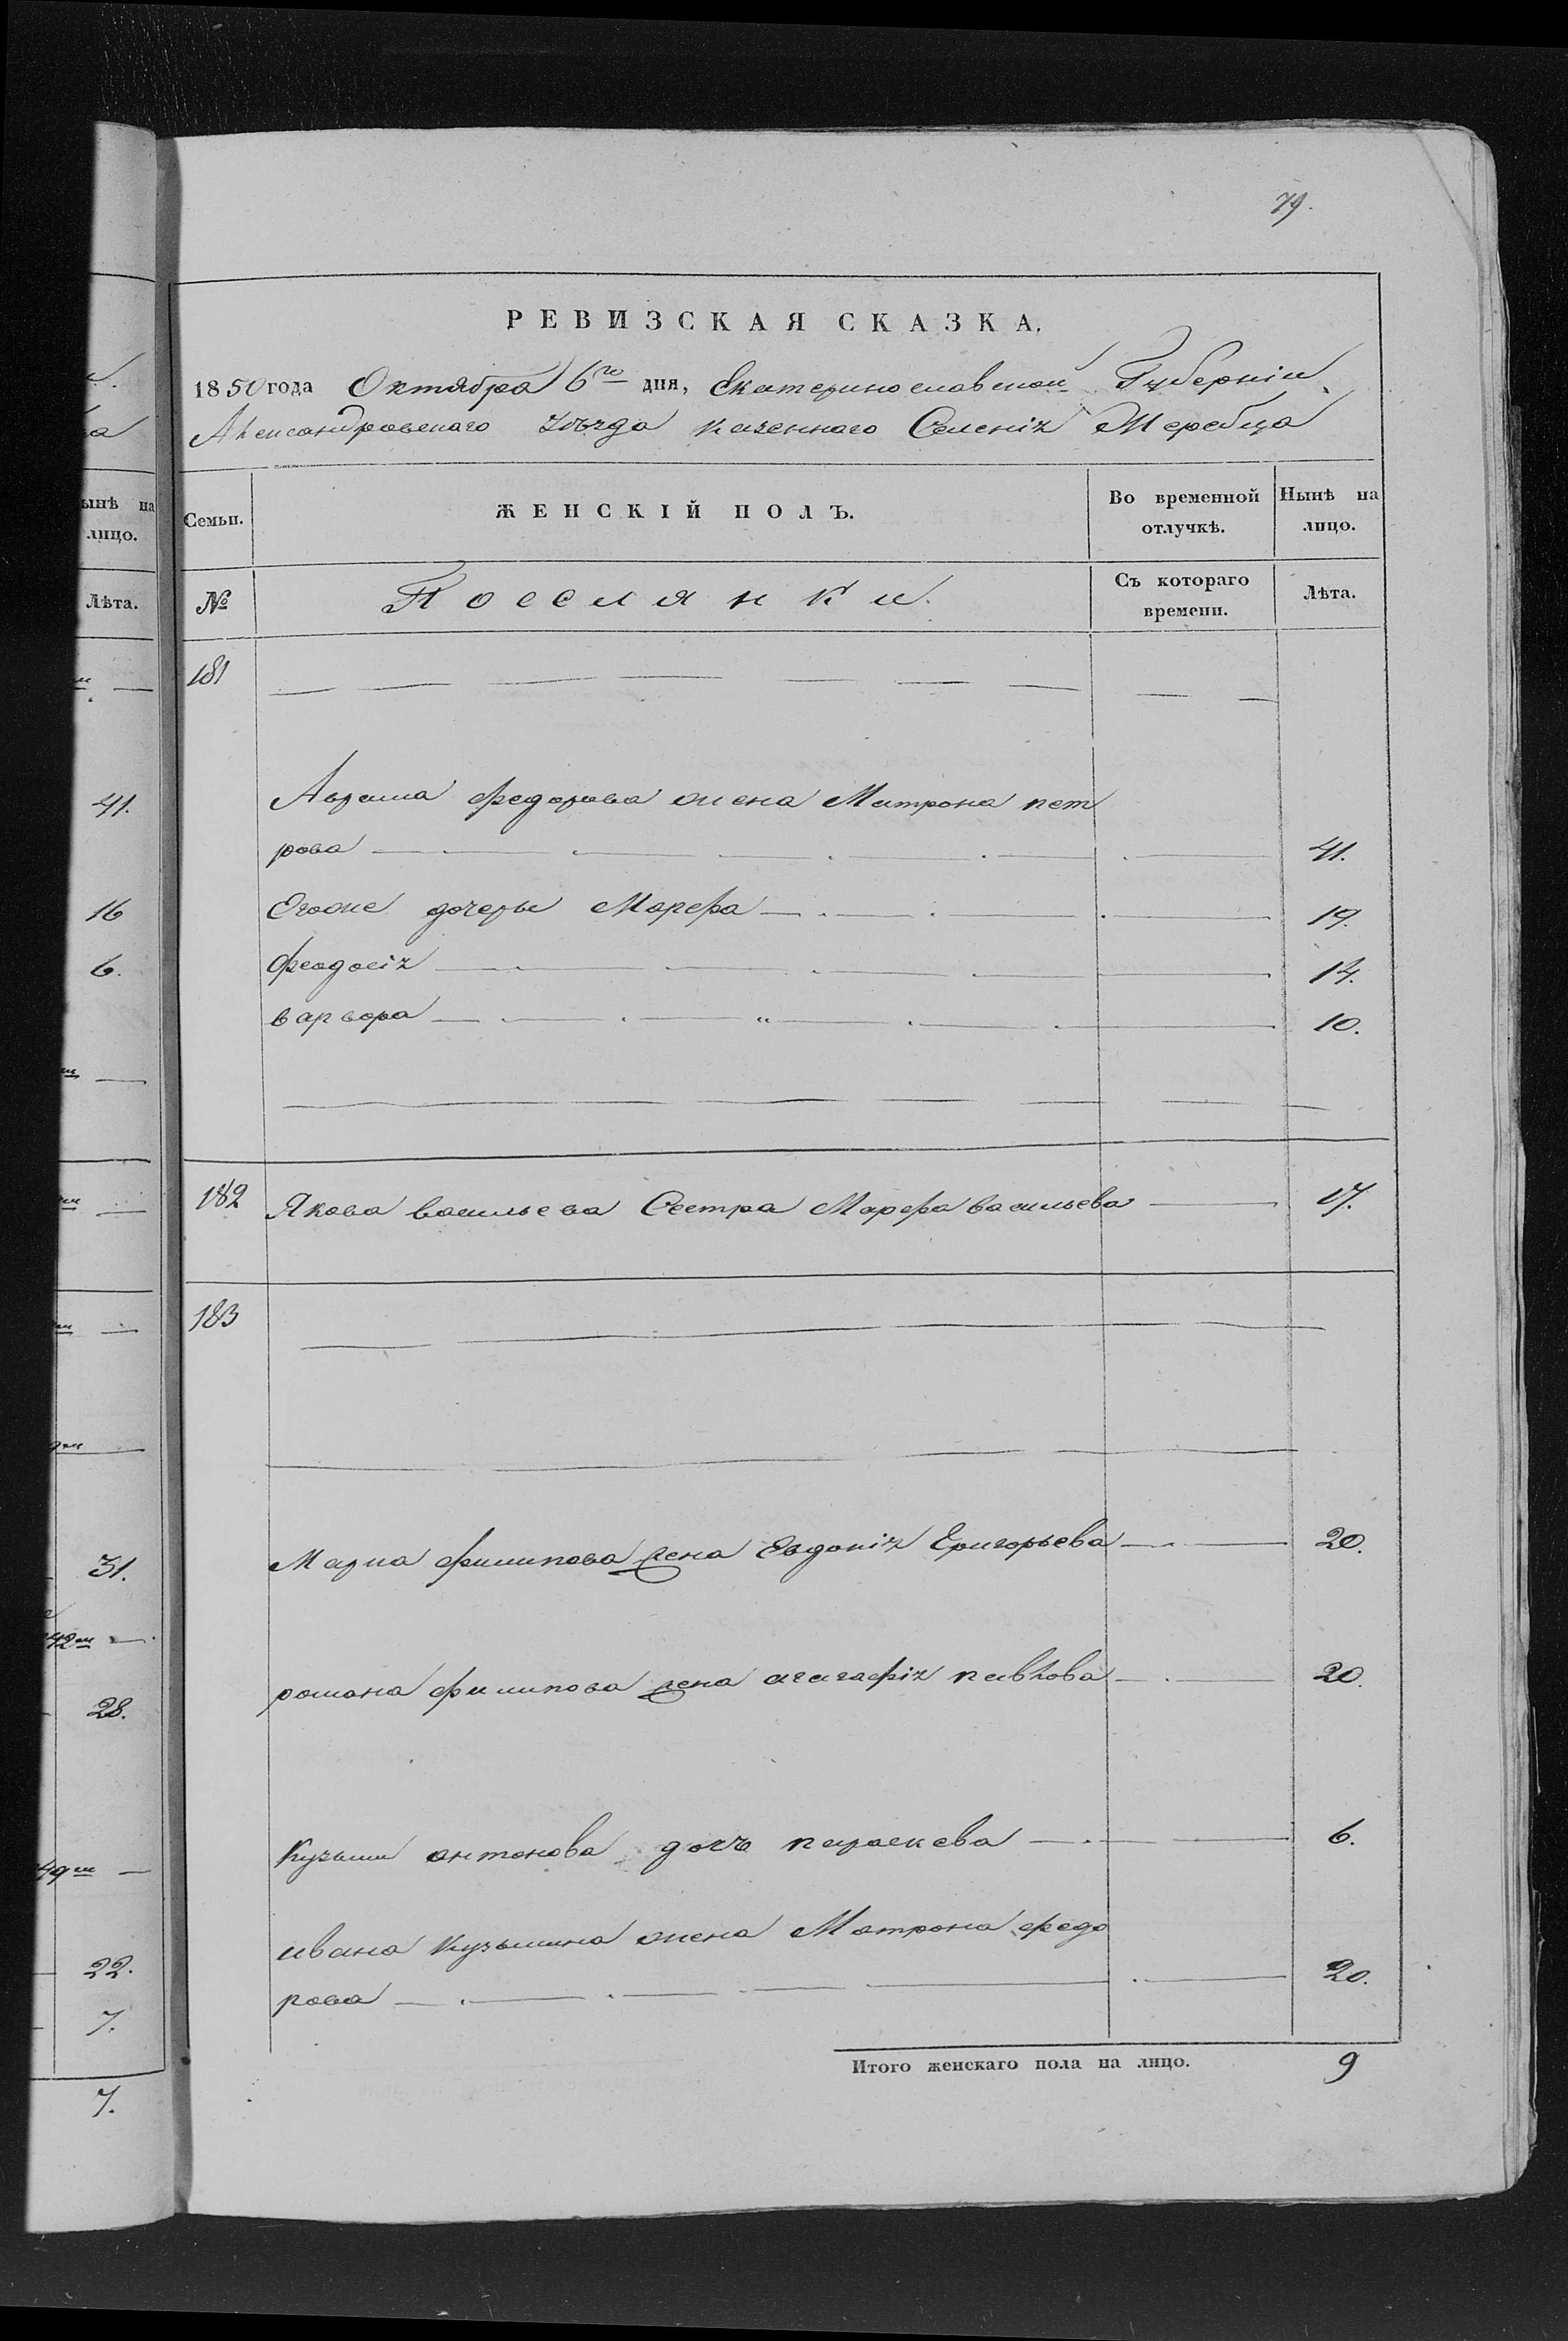 79.
РЕВИЗСКАЯ СКАЗКА.
1850 года Октября 6го дня, Екатеринославской Губерніи
Александровского уѣзда казенного Селенія Жеребца
Семьи.
ЖЕНСКІЙ ПОЛЪ.
Во временной отлучкѣ.
Нынѣ на лицо.
№
Поселянки.
Съ котораго времени.
Лѣта.
181
Аврама федорова жена Матрона пет
рова 41.
Егоже дочеры Марфа 19.
феодосія 14.
варвора 10.
182 Якова васильева Сестра Марфа васильева 17.
183
Марка филипова жена Евдокія Григорьева 20.
романа филипова жена агагафія павлова 20.
Кузьми антонова дочь параскева 6.
ивана Кузьмина жена Матрона федо
рова 20.
Итого женскаго пола на лицо. 9
ынѣ на
лицо.
Лѣта.
41.
16
6.
31.
28.
22.
7.
7.